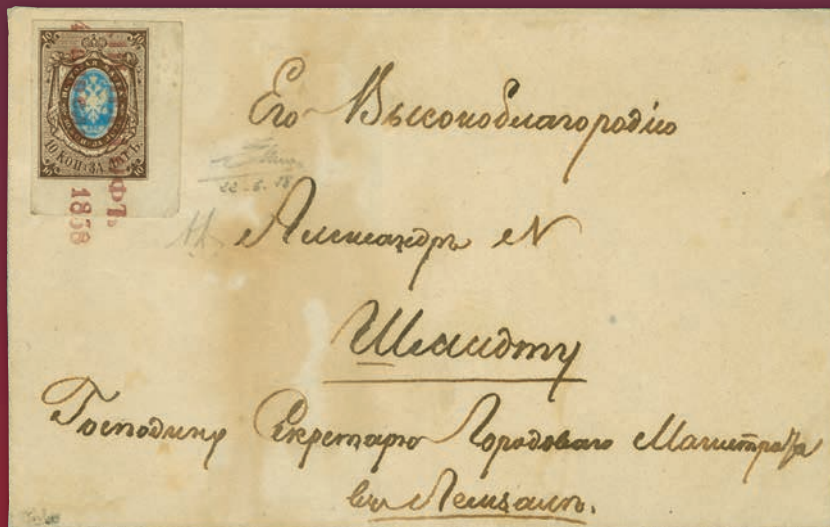 10 10
10 КОП. ЗА ЛОТЪ.
10 10
1858
22-6-58
Его Высокоблагородію
Александръ N
Шмидту
Господину Секретарю Городоваго Магистрата
въ Лемзалѣ.